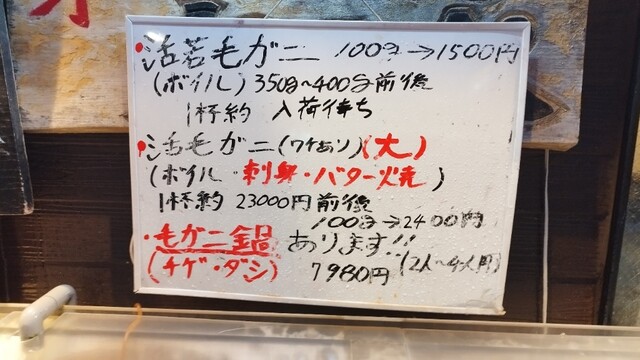 ・活若毛ガニ 100g→1500円
(ボイル) 350g〜400g前後
1杯約 入荷待ち
・活毛ガニ(ワケあり)(大)
(ボイル・刺身・バター焼)
1杯約 23000円前後
100g→2400円
・毛ガニ鍋 あります!!
(チゲ・ダシ) 7980円(2人〜4人用)